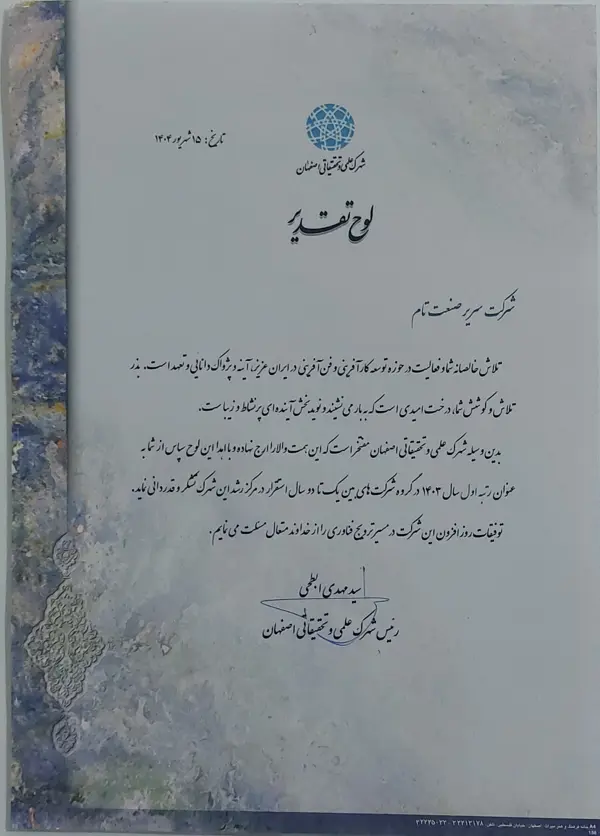 تاریخ: ۱۵ شهریور ۱۴۰۴
شهرک علمی و تحقیقاتی اصفهان
لوح تقدیر
شرکت سریر صنعت تام
تلاش خالصانه شما و فعالیت در حوزه توسعه کارآفرینی و فن آفرینی در ایران عزیز، آینه و پژواک دانایی و تعهد است. بذر
تلاش و کوشش شما، درخت امیدی است که به بار می نشیند و نوید بخش آینده ای پر نشاط و زیباست.
بدین وسیله شهرک علمی و تحقیقاتی اصفهان مفتخر است که این همت والا را ارج نهاده و با اهدا این لوح سپاس از شما به
عنوان رتبه اول سال ۱۴۰۳ در گروه شرکت های بین یک تا دو سال استقرار در مرکز رشد این شهرک تشکر و قدردانی نماید.
توفیقات روز افزون این شرکت در مسیر ترویج فناوری را از خداوند متعال مسئلت می نمایم.
سید مهدی ابطحی
رئیس شهرک علمی و تحقیقاتی اصفهان
اصفهان: خیابان فلسطین تلفن: ۳۲۲۱۳۱۷۸ - ۳۲۲۷۵۰۳۲